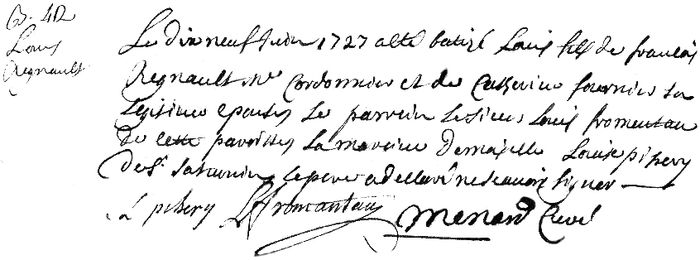 B. 42
Louis
Regnault
Le dix neuf Juin 1727 a esté batizé Louis fils de francois
Regnault Mre Cordonnier et de Catherine fournier sa
legitime epouse Le parrein Le sieur Louis fromentau
de cette paroisse La mareine Demoiselle Louise pihery
de St saturnin le pere a declaré ne scavoir signer
L pihery L fromantau Menard Curé